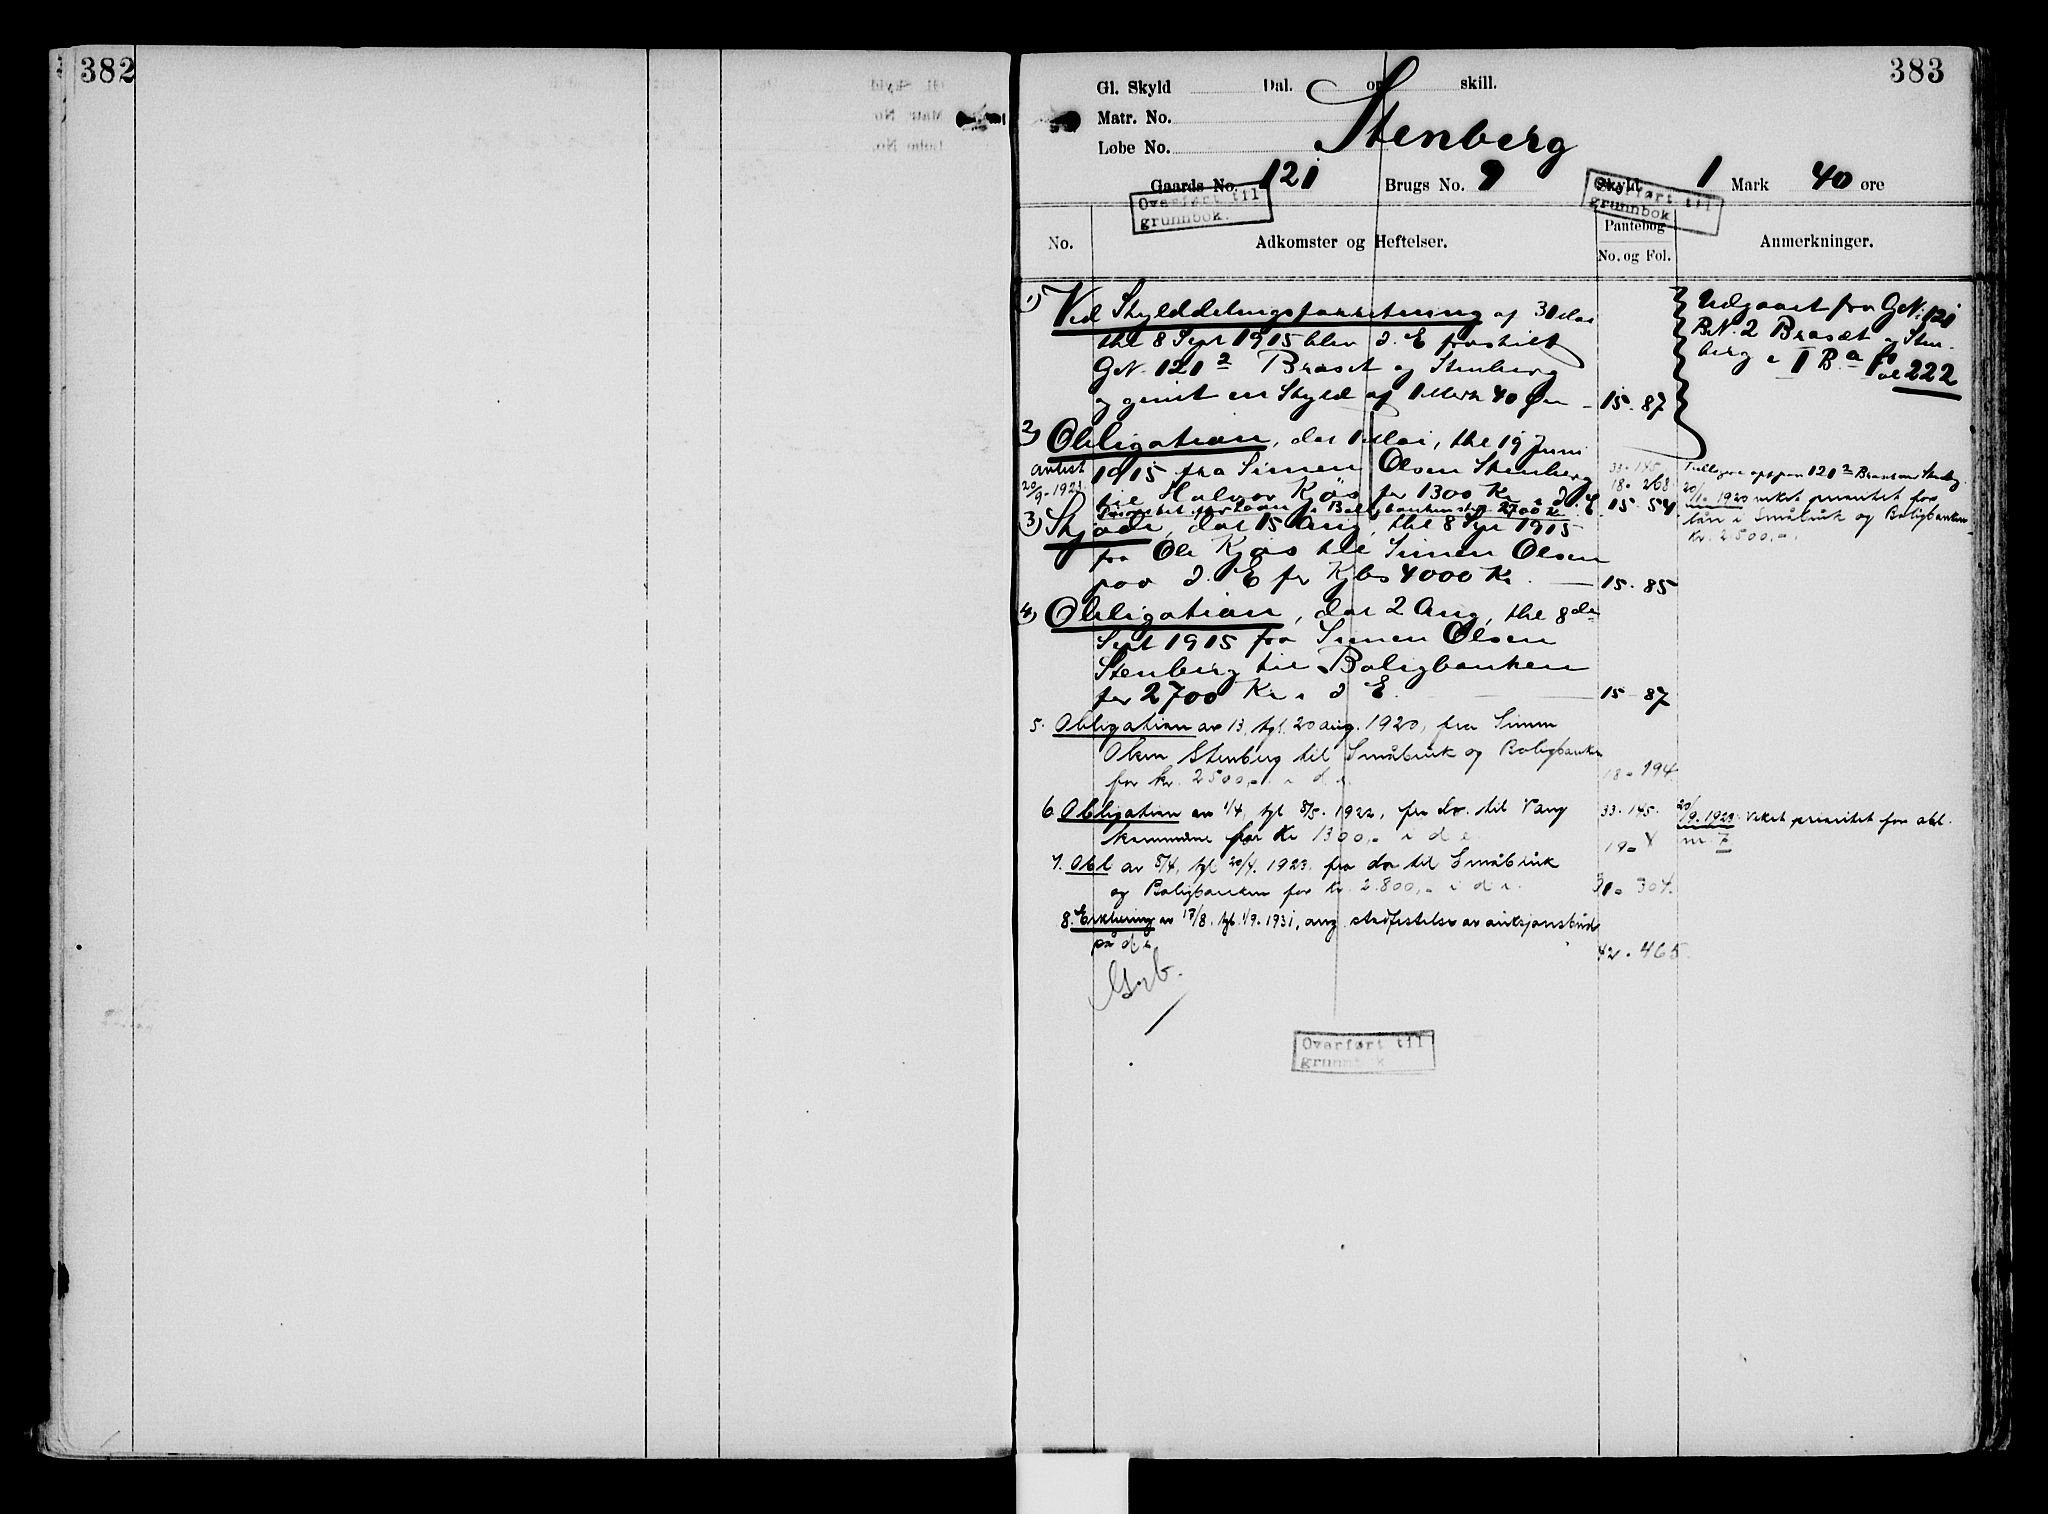 382
383
Gl. Skyld Dal. ort skill.
Matr. No.
Løbe No.
Stenberg
Gaards No. 121 Brugs No. 9 Skyld 1 Mark 40 øre
Overført til
grunnbok.
Overført til
grunnbok
No.
Adkomster og Heftelser.
Pantebog
No. og Fol.
Anmerkninger.
1) Ved Skylddelingsforretning af 31 Mai
thl 8 Sept 1915 blev d. E fraskilt
GN. 121 2 Braset og Stenberg
og givet en Skyld af 1 Mark 40 Øre 15-87
Udgaaet fra GN. 121
BN. 2 Brasæt og Sten-
berg i I B. a fol 222
2) Obligation, dat 1 Mai, thl 19 Juni
avlest 20/9-1923
1915 fra Simen Olsen Stenberg 33-145
18-268
til Halvor Kjøs for 1300 Kr i d. E 15-54
for Laan i Boligbanken stor 2700 Kr
121 2 Braset
20/11-1920 veket prioritet for
lån i Småbruk og Boligbanken
kr. 2500,-.
3) Skjøde, dat 15 Aug, thl 8 Spt 1915
fra Ole Kjøs til Simen Olsen
paa d. E for Kjbs 4000 Kr. 15-85
4) Obligation, dat 2 Aug, thl 8de
Sept 1915 fra Simen Olsen
Stenberg til Boligbanken
for 2700 Kr i d E. 15-87
5. Obligation av 13, tgl. 20 aug. 1920, fra Simen
Olsen Stenberg til Småbruk og Boligbanken
for kr. 2500,-. i d. e. 18-194
6. Obligation av 1/4, tgl 8/5-1922, fra do. til Vang
kommune for Kr 1300,- i d e. 33-145.
19-
20/9-1923 veket prioritet for obl.
nr. 7
7. Obl av 5/4, tgl 20/4. 1923 fra do til Småbruk
og Boligbanken for kr. 2.800,- i d e. 304.
8. Erklæring av 17/8, tgl. 1/9-1931, ang. stadfestelse av auksjonsbud
på d. e. 42-465
Overført til
grunnbok